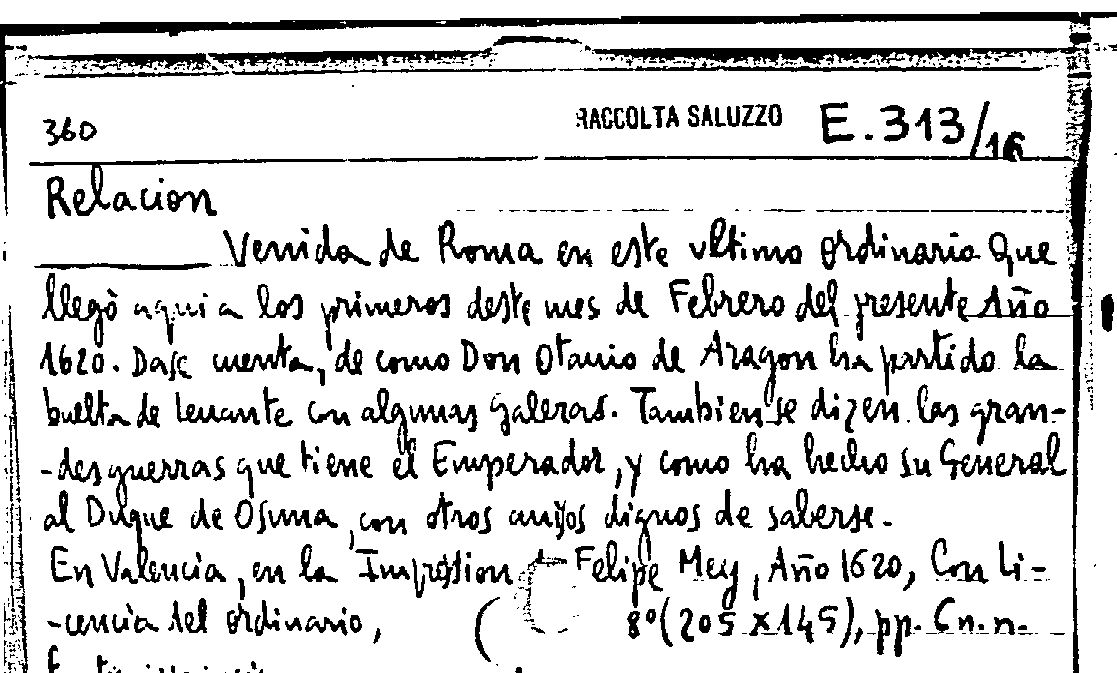 360 RACCOLTA SALUZZO E.313/16
Relacion
Venida de Roma en este vltimo ordinario que
llegò aqui a los primeros deste mes de Febrero del presente Año
1620. Dase cuenta, de como Don Otauio de Aragon ha partido la
buelta de leuante con algunas galeras. Tambien se dizen las gran-
-des guerras que tiene el Emperador, y como ha hecho su General
al Duque de Osuna, con otros auisos dignos de saberse.
En Valencia, en la Impression de Felipe Mey, Año 1620, Con Li-
-cencia del ordinario, ( 8º (205 x 145), pp. 6 n.n.